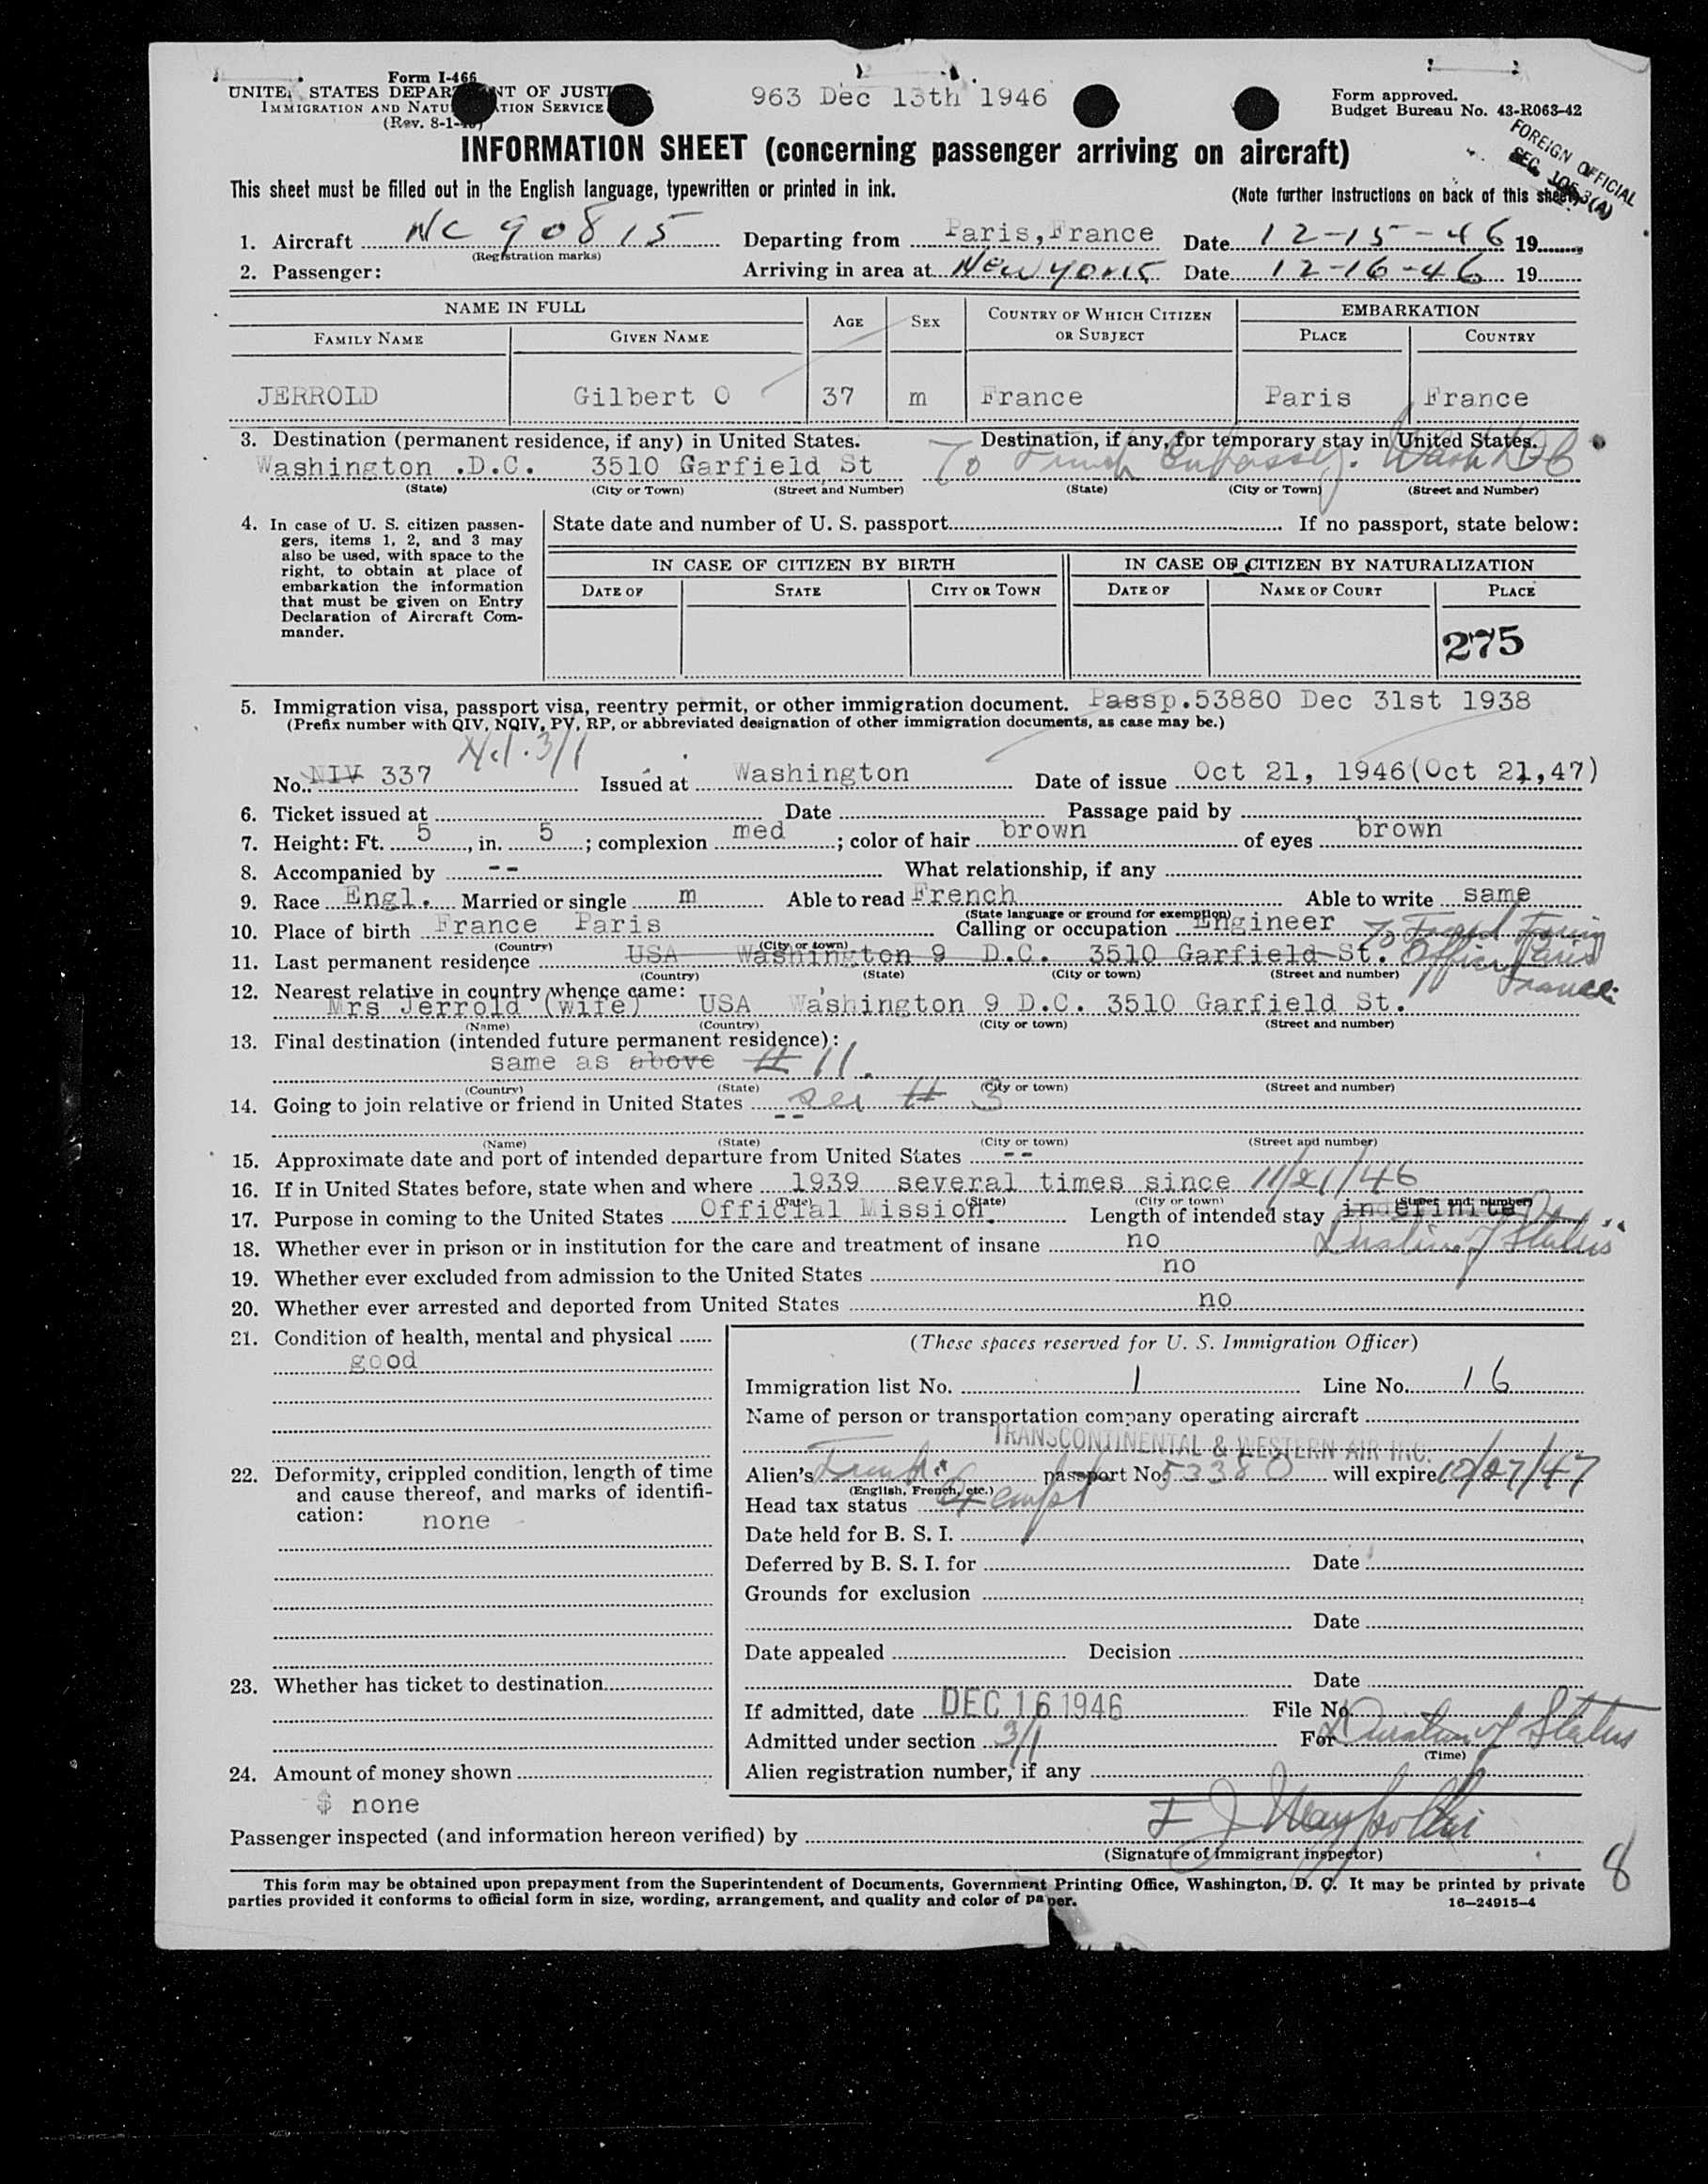 Form I-466
UNITE STATES DEPAR NT OF JUST
IMMIGRATION AND NATU TION SERVICE
(Rev. 8-1- )
963 Dec 13th 1946
Form approved.
Budget Bureau No. 43-R063-42
FOREIGN OFFICIAL
SEC. 3(A)
INFORMATION SHEET (concerning passenger arriving on aircraft)
This sheet must be filled out in the English language, typewritten or printed in ink.
(Note further instructions on back of this sheet)
1. Aircraft NC 90815 Departing from Paris,France Date 12-15-46 19
(Registration marks)
2. Passenger: Arriving in area at New York Date 12-16-46 19
NAME IN FULL AGE SEX COUNTRY OF WHICH CITIZEN OR SUBJECT EMBARKATION
FAMILY NAME GIVEN NAME PLACE COUNTRY
JERROLD Gilbert O 37 m France Paris France
3. Destination (permanent residence, if any) in United States. Destination, if any, for temporary stay in United States.
Washington .D.C. 3510 Garfield St To French Embassy. Wash DC
(State) (City or Town) (Street and Number) (State) (City or Town) (Street and Number)
4. In case of U. S. citizen passengers, items 1, 2, and 3 may also be used, with space to the right, to obtain at place of embarkation the information that must be given on Entry Declaration of Aircraft Commander.
State date and number of U. S. passport If no passport, state below:
IN CASE OF CITIZEN BY BIRTH IN CASE OF CITIZEN BY NATURALIZATION
DATE OF STATE CITY OR TOWN DATE OF NAME OF COURT PLACE
275
5. Immigration visa, passport visa, reentry permit, or other immigration document. Passp.53880 Dec 31st 1938
(Prefix number with QIV, NQIV, PV, RP, or abbreviated designation of other immigration documents, as case may be.)
3/1
No. NIV 337 Issued at Washington Date of issue Oct 21, 1946(Oct 21,47)
6. Ticket issued at Date Passage paid by
7. Height: Ft. 5, in. 5; complexion med; color of hair brown of eyes brown
8. Accompanied by -- What relationship, if any
9. Race Engl. Married or single m Able to read French Able to write same
(State language or ground for exemption)
10. Place of birth France Paris Calling or occupation Engineer
(Country) (City or town)
11. Last permanent residence USA Washington 9 D.C. 3510 Garfield St. Office Paris France
(Country) (State) (City or town) (Street and number)
12. Nearest relative in country whence came:
Mrs Jerrold (wife) USA Washington 9 D.C. 3510 Garfield St.
(Name) (Country) (City or town) (Street and number)
13. Final destination (intended future permanent residence):
same as above # 11.
(Country) (State) (City or town) (Street and number)
14. Going to join relative or friend in United States see # 3
--
(Name) (State) (City or town) (Street and number)
15. Approximate date and port of intended departure from United States --
16. If in United States before, state when and where 1939 several times since 11/21/46
(Date) (State) (City or town) (Street and number)
17. Purpose in coming to the United States Official Mission. Length of intended stay indefinite
Duration of Status
18. Whether ever in prison or in institution for the care and treatment of insane no
19. Whether ever excluded from admission to the United States no
20. Whether ever arrested and deported from United States no
21. Condition of health, mental and physical
good
22. Deformity, crippled condition, length of time and cause thereof, and marks of identification: none
23. Whether has ticket to destination
24. Amount of money shown
$ none
(These spaces reserved for U. S. Immigration Officer)
Immigration list No. 1 Line No. 16
Name of person or transportation company operating aircraft
TRANSCONTINENTAL & WESTERN AIR INC.
Alien's French passport No. 53380 will expire 10/27/47
(English, French, etc.)
Head tax status Exempt
Date held for B. S. I.
Deferred by B. S. I. for Date
Grounds for exclusion
Date
Date appealed Decision
Date
If admitted, date DEC 16 1946 File No.
Admitted under section 3/1 For Duration of Status
(Time)
Alien registration number, if any
Passenger inspected (and information hereon verified) by
(Signature of immigrant inspector)
8
This form may be obtained upon prepayment from the Superintendent of Documents, Government Printing Office, Washington, D. C. It may be printed by private
parties provided it conforms to official form in size, wording, arrangement, and quality and color of paper.
16—24915-4